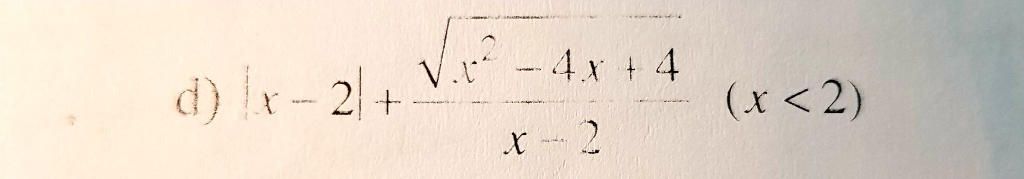 d) |x − 2| + \frac{\sqrt{x^2 − 4x + 4}}{x − 2} (x < 2)